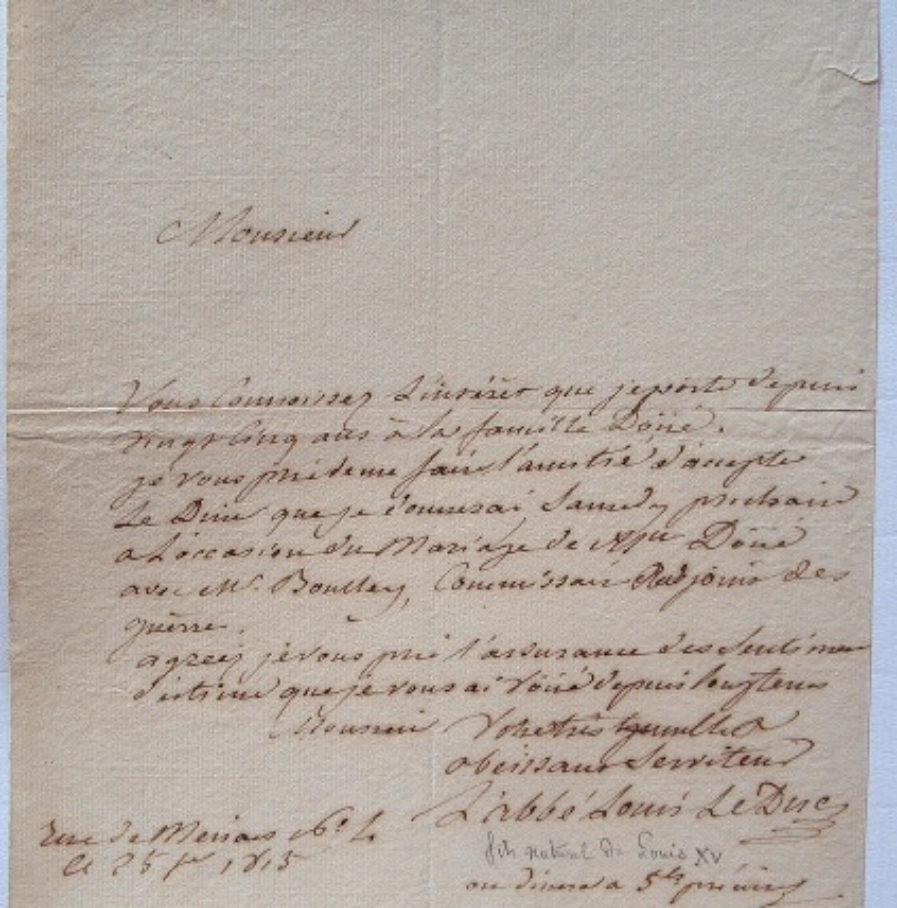 Monsieur
Vous Connoissez L'intérêt que je porte depuis
vingt cinq ans à la famille Doüé.
je vous prie de me faire l'amitié d'accepter
Le Diné que je donnerai Samedy prochain
a L'occasion du Mariage de Mlle Doüé
avec Mr. Boulley, Commissair Adjoint des
guerre.
agreez je vous prie l'assurance des sentimens
d'estime que je vous ai Voüé depuis longtems
Monsieur Votre très humble &
obeissant Serviteur
L'abbé Louis Le Duc
rue de
Le 25 1815
fils naturel de Louis XV
on dinera a 5h précises